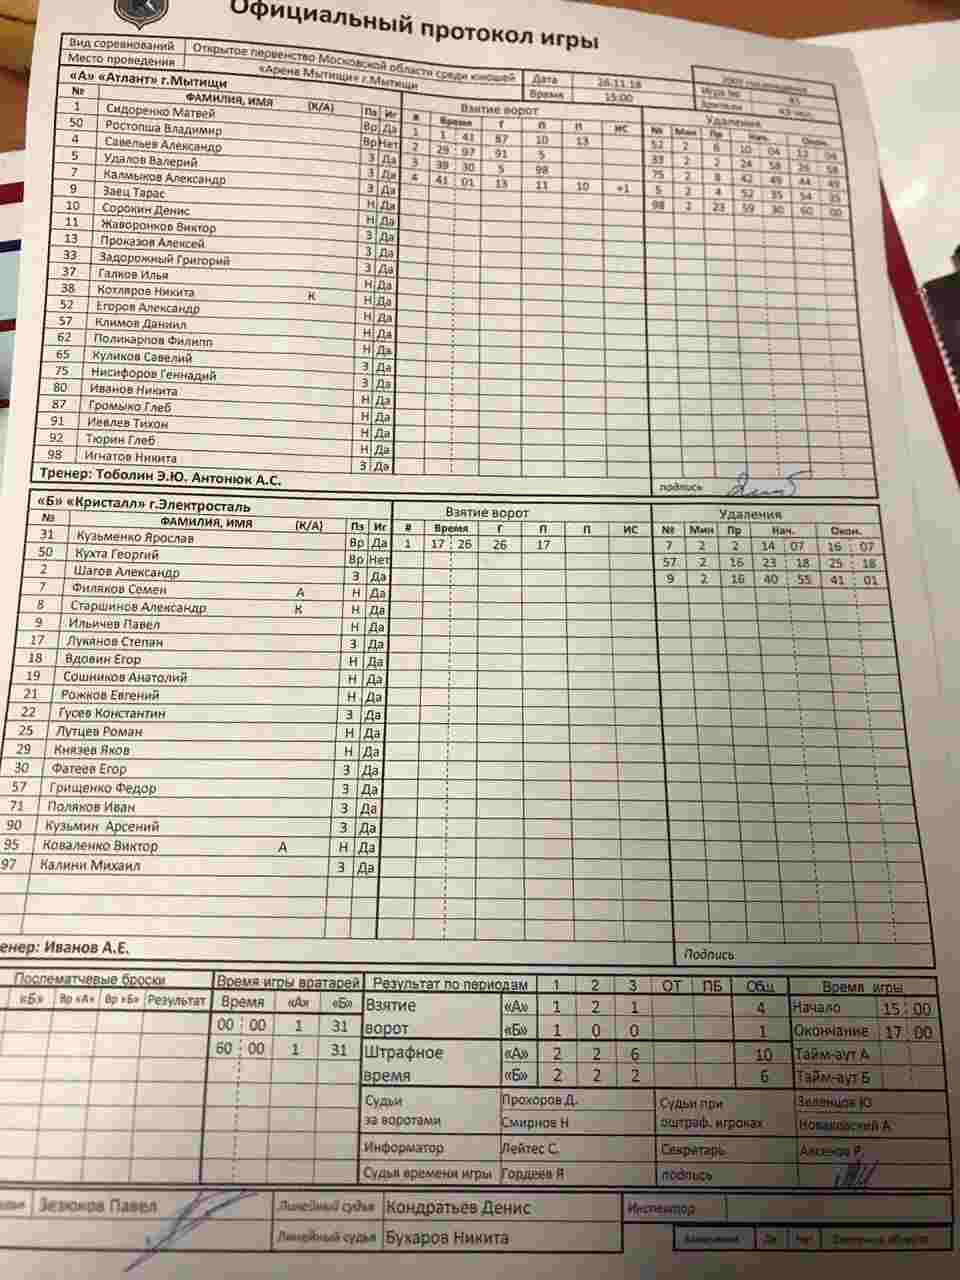 Официальный протокол игры
Вид соревнований Открытое первенство Московской области среди юношей Дата 26.11.18
Место проведения «Арена Мытищи» г.Мытищи Время 15:00 Игра № Зрители
«А» «Атлант» г.Мытищи Взятие ворот Удаления
№ ФАМИЛИЯ, ИМЯ (К/А) Пз Иг # Время Г П П ИС № Мин Пр Нач. Окон.
1 Сидоренко Матвей Вр Да 1 1 41 87 10 13 52 2 6 10 04 12 04
50 Ростопша Владимир Вр Нет 2 29 97 91 5 33 2 2 24 58 26 58
4 Савельев Александр З Да 3 39 30 5 98 75 2 8 42 49 44 49
5 Удалов Валерий З Да 4 41 01 13 11 10 +1 5 2 4 52 35 54 35
7 Калмыков Александр З Да 98 2 23 59 30 60 00
9 Заец Тарас Н Да
10 Сорокин Денис Н Да
11 Жаворонков Виктор З Да
13 Проказов Алексей З Да
33 Задорожный Григорий З Да
37 Галков Илья Н Да
38 Котляров Никита К Н Да
52 Егоров Александр Н Да
57 Климов Даниил Н Да
62 Поликарпов Филипп Н Да
65 Куликов Савелий З Да
75 Нисифоров Геннадий З Да
80 Иванов Никита Н Да
87 Громыко Глеб Н Да
91 Иевлев Тихон Н Да
92 Тюрин Глеб Н Да
98 Игнатов Никита З Да
Тренер: Тоболин Э.Ю. Антонюк А.С. подпись
«Б» «Кристалл» г.Электросталь Взятие ворот Удаления
№ ФАМИЛИЯ, ИМЯ (К/А) Пз Иг # Время Г П П ИС № Мин Пр Нач. Окон.
31 Кузьменко Ярослав Вр Да 1 17 26 26 17 7 2 2 14 07 16 07
50 Кухта Георгий Вр Нет 57 2 16 23 18 25 18
2 Шагов Александр З Да 9 2 16 40 55 41 01
7 Филяков Семен А Н Да
8 Старшинов Александр К Н Да
9 Ильичев Павел Н Да
17 Лукянов Степан З Да
18 Вдовин Егор Н Да
19 Сошников Анатолий Н Да
21 Рожков Евгений Н Да
22 Гусев Константин З Да
25 Лутцев Роман Н Да
29 Князев Яков Н Да
30 Фатеев Егор З Да
57 Грищенко Федор З Да
71 Поляков Иван З Да
90 Кузьмин Арсений З Да
95 Коваленко Виктор А Н Да
97 Калини Михаил З Да
енер: Иванов А.Е. Подпись
Послематчевые броски Время игры вратарей Результат по периодам 1 2 3 ОТ ПБ Общ Время игры
«Б» Вр «А» Вр «Б» Результат Время «А» «Б» Взятие «А» 1 2 1 4 Начало 15 00
00 00 1 31 ворот «Б» 1 0 0 1 Окончание 17 00
60 00 1 31 Штрафное «А» 2 2 6 10 Тайм-аут А
время «Б» 2 2 2 6 Тайм-аут Б
Судьи Прохоров Д. Судьи при Зеленцов Ю
за воротами Смирнов Н оштраф. игроках Новаковский А
Информатор Лейтес С. Секретарь Аксенов Р.
Судья времени игры Гордеев Я подпись
Зезюков Павел Линейный судья Кондратьев Денис Инспектор
Линейный судья Бухаров Никита Да Нет